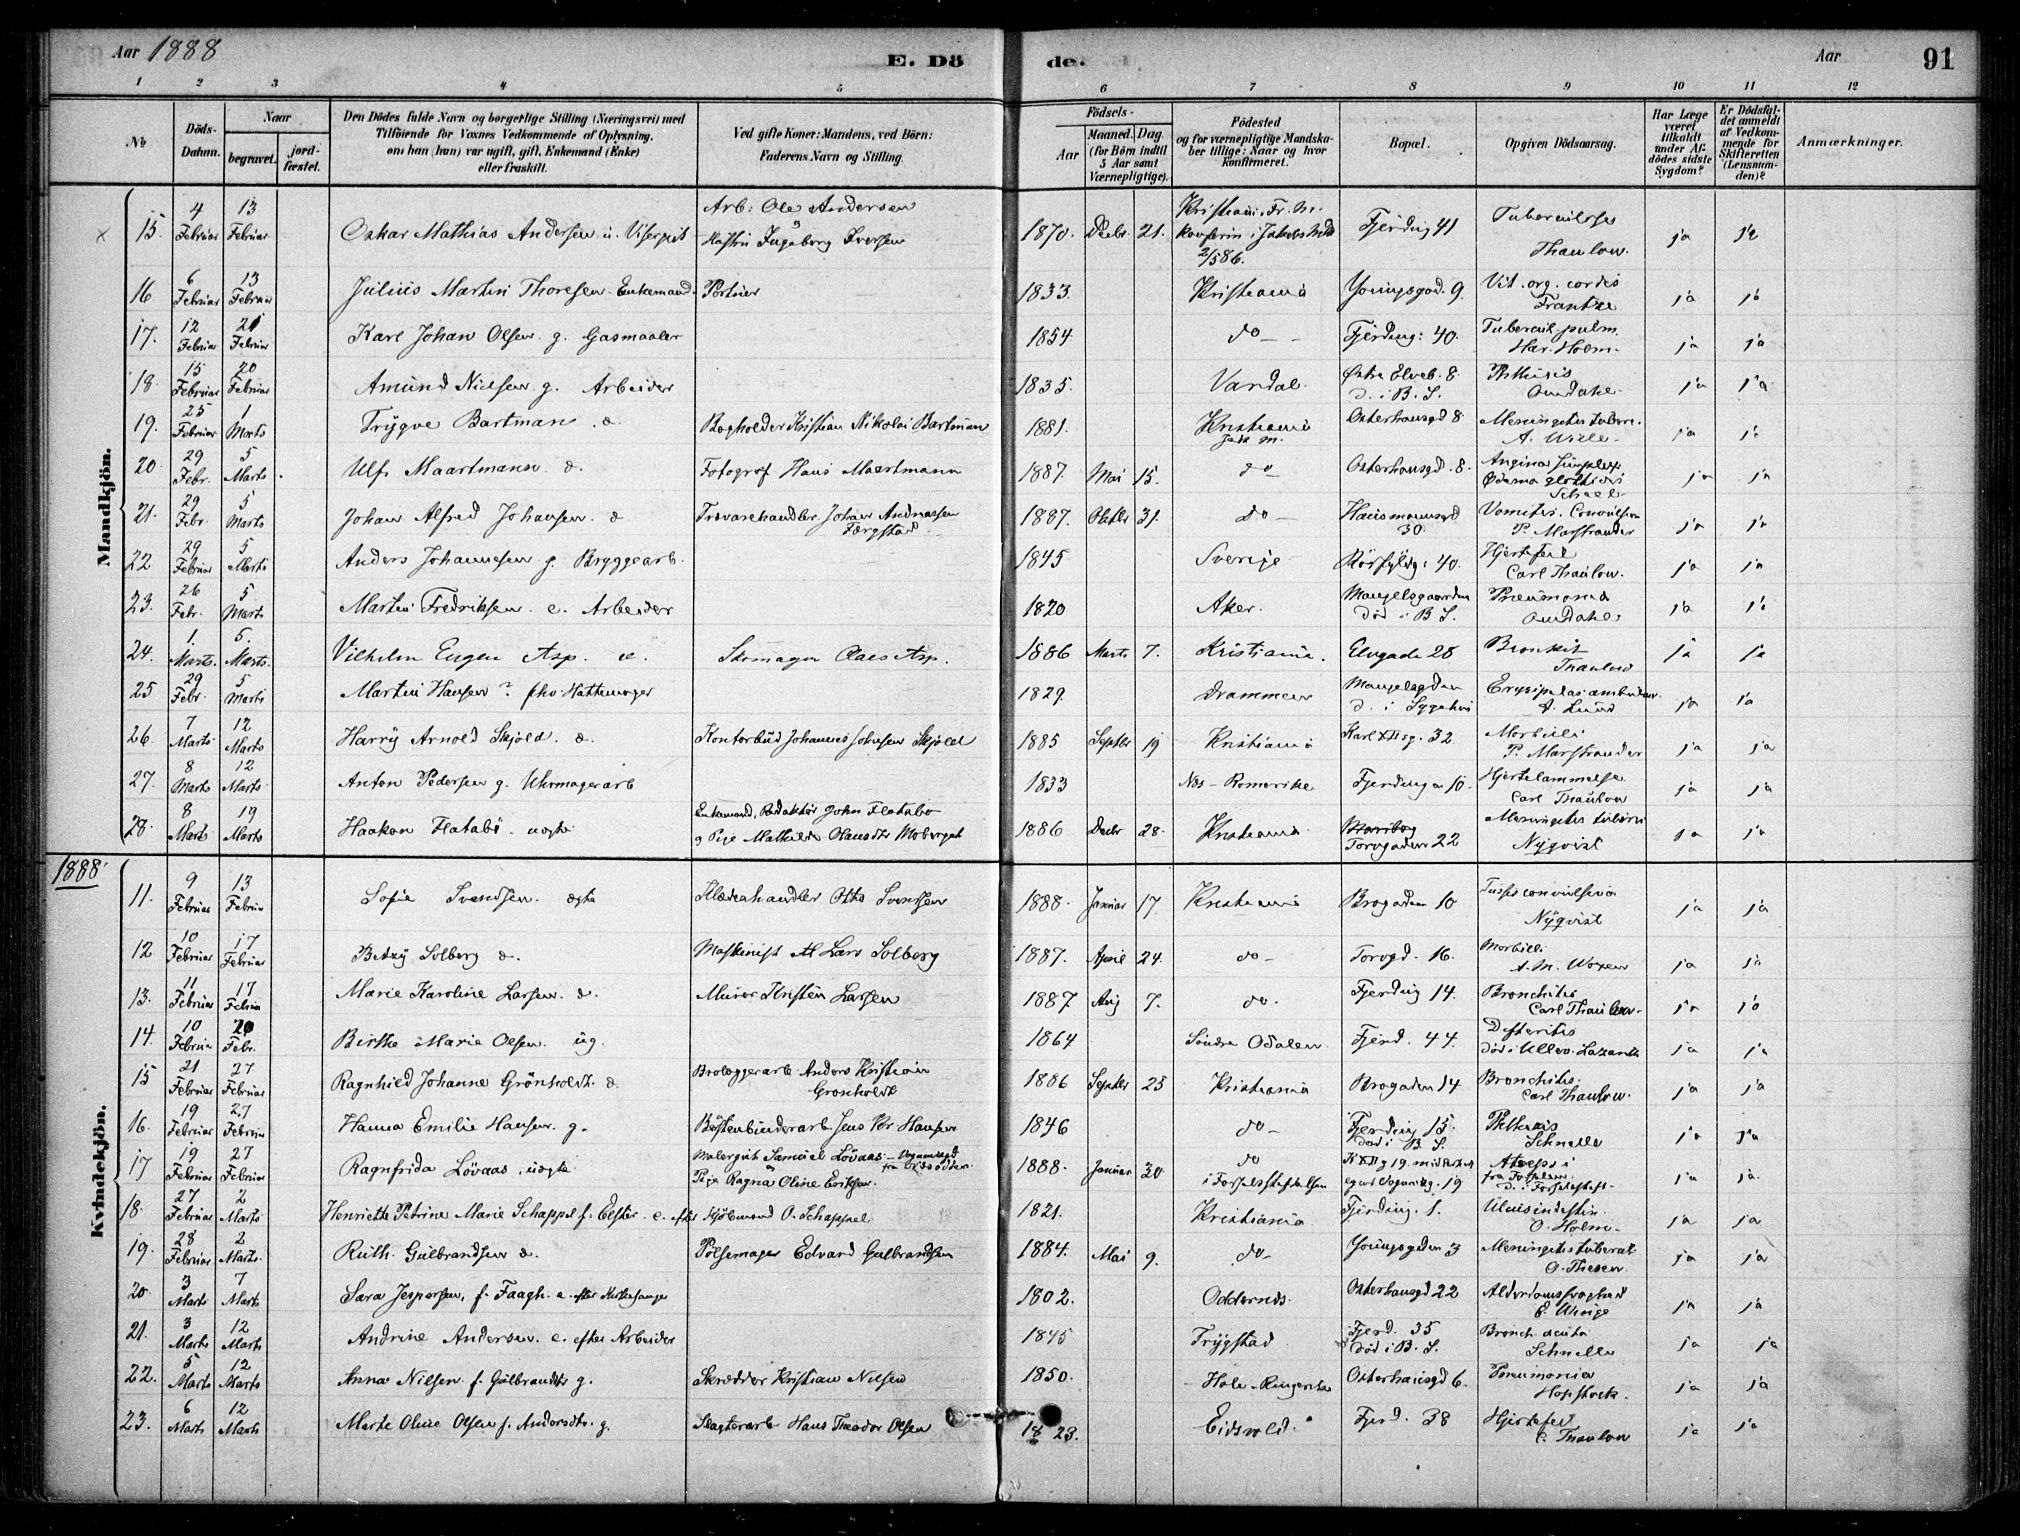 Aar 1888 E. Döde. Aar 91
1 2 3 4 5 6 7 8 9 10 11 12
No Döds-Datum. Naar begravet. jordfæstet. Den Dödes fulde Navn og borgerlige Stilling (Næringsvei) med Tilföiende for Voxnes Vedkommende af Oplysning, om han (hun) var ugift, gift, Enkemand (Enke) eller fraskilt. Ved gifte Koner: Mandens, ved Börn: Faderens Navn og Stilling. Födsels- Aar Maaned. Dag. (for Börn indtil 5 Aar samt Værnepligtige). Födested og for værnepligtige Mandskaber tillige: Naar og hvor konfirmeret. Bopæl. Opgiven Dödsaarsag. Har Læge været tilkaldt under Afdödes sidste Sygdom? Er Dödsfaldet anmeldt af Vedkommende for Skifteretten (Lensmanden)? Anmærkninger.
Mandkjön.
15. 4 Februar 13 Februar Oskar Mathias Andersen u. Visergut Arb: Ole Andersen Hustru Ingeborg Iversen 1870. Decbr. 21. Kristiania Fr. M. Konfirm i Jakobs 2/5 86. Fjerding 41 Tuberculose Thaulow. ja ja
16 6 Februar 13 Februar Julius Martin Thoresen Enkemand Portner 1833. Kristiania Youngsgad. 9. Vit. org. cordis Frantze ja ja
17. 12 Februar 21 Februar Karl Johan Olsen g. Gasmaaler 1854 do Fjerding: 40. Tubercul. pulm. Har. Holm. ja ja
18. 15 Februar 20 Februar Amund Nielsen g. Arbeider 1835. Vardal. Østre Elveb. 8 d. i B. S. Phthisis Omdahl ja ja
19. 25 Februar 1 Marts Trygve Bartman. æ. Bogholder Kristian Nikolai Bartman 1881. Kristiania Osterhausgd 8. Meningitis tuberc. A. ja ja
20 29 Febr. 5 Marts. Ulf Maartmann æ. Fotograf Hans Maartmann 1887. Mai 15. do Osterhausgd. 8. Angina simplex Ødema glottidis Scheel ja ja
21. 29 Febr. 5 Marts Johan Alfred Johansen æ Trævarehandler Johan Andreassen Færgstad 1887. Oktbr 31. do Hausmannsgd 30. Vomitus. Convulsion P. Marstrander ja ja
22 29 Februar 5 Marts Anders Johannesen g. Bryggearb. 1845 Sverige 40. Hjertefeil Carl Thaulow. ja ja
23. 26 Febr. 5 Marts Martin Fredriksen e. Arbeider 1820 Aker. Mangelsgaarden död i B. S. Pneumonia Omdahl. ja ja
24. 1. Marts. 5. Marts. Vilhelm Eugen Asp. æ. Skomager Claes Asp. 1886 Marts 7. Kristiania. Elvgade 28 Bronkit Thaulow ja ja
25 29 Febr. 5 Marts Martin Hansen ? fhv. Hattemager 1829. Drammen Mangelsgden d. i Sygehus Erysipelas ambulans A. Lund ja ja
26. 7 Marts 12 Marts Harry Arnold Skjöld. æ. Kontorbud Johannes Johnsen Skjöld 1885 Septbr 19 Kristiania Karl XIIsg. 32 Morbilli P. Marstrander ja ja
27. 8 Marts 12 Marts. Anton Pedersen g. Uhrmagerarb 1833 Nes - Romerike Fjerdingen 10. Hjertelammelse Carl Thaulow ja ja
28. 8 Marts 19 Marts Haakon Flatabö - uægte Enkemand, Redaktör John Flatabö og Pige Mathilde Olausdtr Moberget 1886 Decbr 28. Kristiania Torvgaden 22 Meningitis tuberc. Nyqvist ja ja
1888.
Kvindekjön.
11. 9 Februar 13 Februar Sofie Svendsen ægte Klædeshandler Otto Svensen 1888. Januar 17. Kristiania Brogaden 10 Tussis convulsiva Nyqvist ja ja
12 10 Februar 17 Februar Betzy Solberg æ. Maskinist Lars Solberg 1887. April 24. do Torvgd. 16. Morbilli A. M. Woxen ja ja
13. 11 Februar 17 Februar Marie Karoline Larsen. æ. Murer Kristen Larsen 1887. Aug 7. do. Fjerding 14. Bronchitis Carl Thaulow. ja ja
14. 10 Februar 20 Febr. Birthe Marie Olsen. ug. 1864 Söndre Odalen Fjerd. 44. Difteritis död i Ullev. Lazareth ja ja
15 21 Februar 27 Februar Ragnhild Johanne Grönholdt. æ Brolæggerarb Anders Kristian Gronholdt 1886 Septbr 25 Kristiania Brogaden 14 Bronchitis. Carl Thaulow. ja ja
16. 19 Februar 27 Februar Hanna Emilie Hansen g. Börstenbinderarb Jens Hansen 1846 do Fjerding 15. död i B. S. Phthisis Schnelle ja ja
17 19 Februar 27 Februar Ragnfrida Lövaas, uægte Malergut Samuel Lövaas Pige Ragna Oline Eriksen. 1888. Januar 30. do i Födselsstiftelsen 19 Atrepsi ja ja
18. 27 Februar 2 Marts Henriette Petrine Marie Schappel f. Elster e. efter Kjöbmand O. Schappel 1821. Kristiania Fjerding. 1. Ulcus O. Holm. ja ja
19. 28 Februar 2 Marts. Ruth. Gulbrandsen æ. Pölsemager Edvard Gulbrandsen 1884. Mai 9. do Youngsgaden 3 Meningitis tubercul. O. Thesen ja ja
20 3 Marts 7 Marts. Sara Jespersen, f. Faagh. e. efter Kirkesanger 1802. Oddernes. Osterhausgd 22 Alderdomssvaghed E. ja ja
21. 3 Marts 12 Marts Andrine Andersen e. efter Arbeider 1845 Trygstad Fjerd. 35 död i B. S. Bronch. acuta Schnelle ja ja
22. 5 Marts 12 Marts Anna Nilsen f. Gulbrandsdtr g. Skrædder Kristian Nilsen 1850. Hole Ringerike Osterhausgd 6. Pneumonia Hopstock. ja ja
23. 6 Marts 12 Marts Marte Oline Olsen f. Andersdtr. g. Slagterarb Hans Theodor Olsen 1823. Eidsvold. Fjerd. 38 Hjertefeil C. Thaulow ja ja